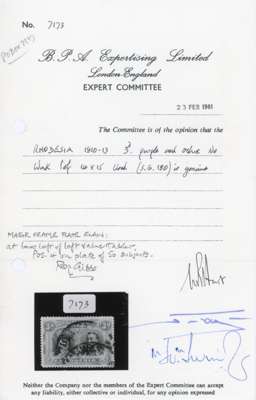 No. 7173
B. P. A. Expertising Limited
London England
EXPERT COMMITTEE
23 FEB 1981
The Committee is of the opinion that the
RHODESIA 1910-13 3d. purple and ochre No
Wmk Perf 14 x 15 Used (S.G. 180) is genuine
MAJOR FRAME PLATE FLAW:
at long left of left value tablet
POS on plate of 50 subjects.
7173
Neither the Company nor the members of the Expert Committee can accept
any liability, either collective or individual, for any opinion expressed